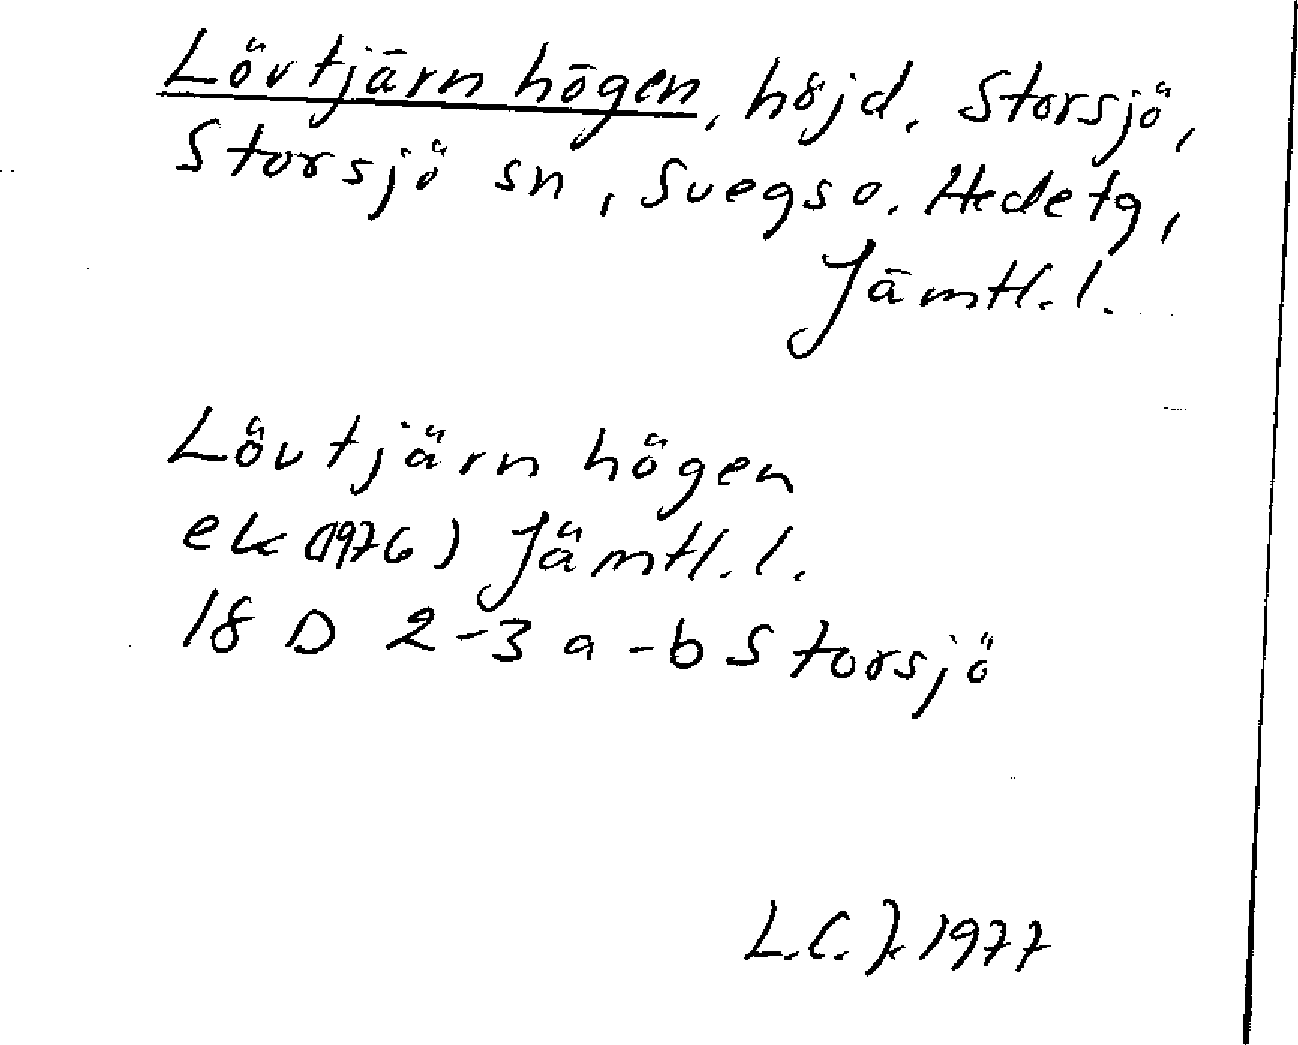 Lövtjärnhögen, höjd, Storsjö,
Storsjö sn, Svegs o. Hede tg,
Jämtl. l.
Lövtjärnhögen
ek (1976) Jämtl. l.
18 D 2-3 a-b Storsjö
L.C.J. 1977